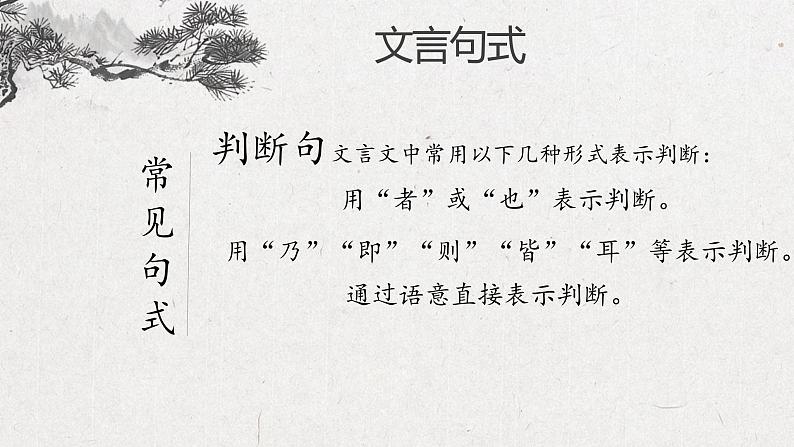 文言句式
常见句式
判断句 文言文中常用以下几种形式表示判断：
用“者”或“也”表示判断。
用“乃”“即”“则”“皆”“耳”等表示判断。
通过语意直接表示判断。